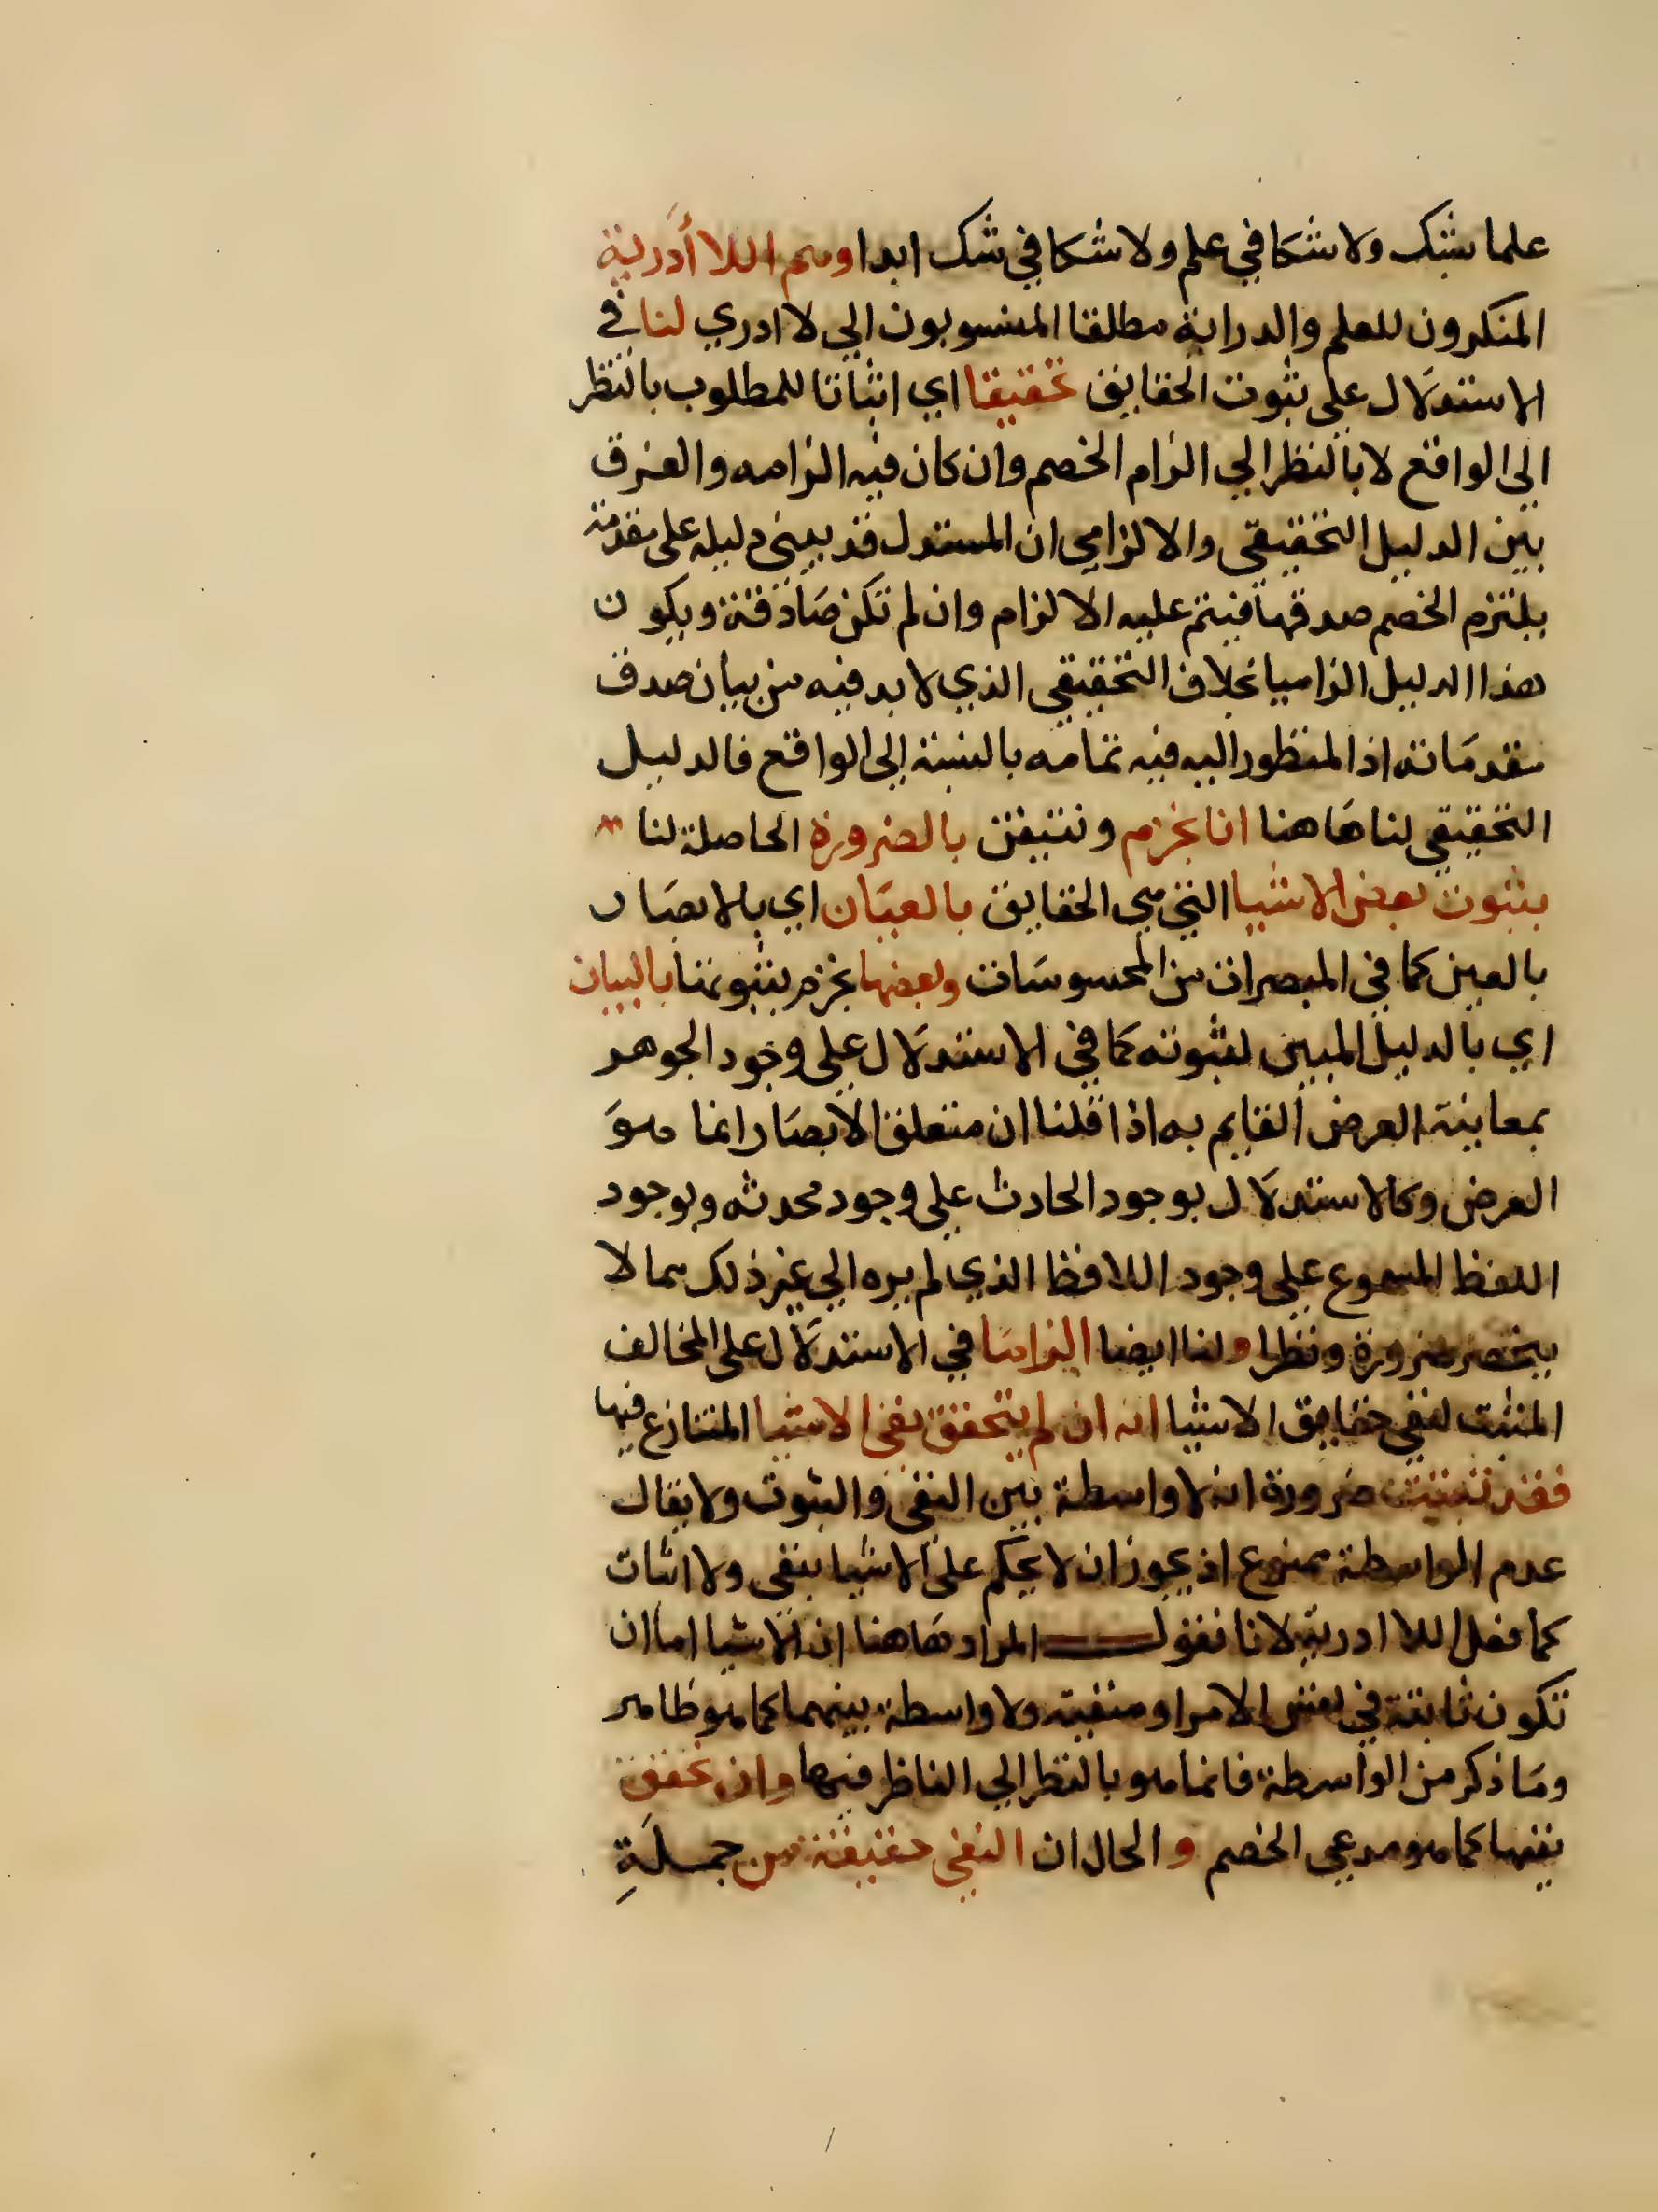 علما بشك ولا شكا في علم ولا شكا في شك ابدا وهم اللا أدرية
المنكرون للعلم والدراية مطلقا المنسوبون الي لا ادري لنا في
الاستدلال علي ثبوت الحقايق تحقيقا اي اثباتا للمطلوب بالنظر
الي الواقع لا بالنظر الي الزام الخصم وان كان فيه الزامه والفرق
بين الدليل التحقيقي والالزامي ان المستدل قد يبني دليله على مقدمة
يلتزم الخصم صدقها فيتم عليه الالزام وان لم تكن صادقة ويكون
هذا الدليل الزاميا بخلاف التحقيقي الذي لا بد فيه من بيان صدق
مقدماته اذ المنظور اليه فيه تمامه بالنسبة الي الواقع فالدليل
التحقيقي لنا هاهنا انا نجزم ونتيقن بالضرورة الحاصلة لنا
بثبوت بعض الاشيا التي هي الحقايق بالعيان اي بالابصار
بالعين كما في المبصرات من المحسوسات وبعضها نجزم بثبوتها بالبيان
اي بالدليل المبين لثبوته كما في الاستدلال علي وجود الجوهر
بمعاينة العرض القايم به اذا قلنا ان متعلق الابصار انما هو
العرض وكالاستدلال بوجود الحادث علي وجود محدثه وبوجود
اللفظ المسموع علي وجود اللافظ الذي لم يره الي غير ذلك مما لا
ينحصر ضرورة ونظرا ولنا ايضا الزاما في الاستدلال على المخالف
المثبت لنفي حقايق الاشيا انه ان لم يتحقق نفي الاشيا المتنازع فيها
فقد ثبتت ضرورة انه لا واسطة بين النفي والثبوت ولا يقال
عدم الواسطة ممنوع اذ يجوز ان لا يحكم على الاشيا بنفي ولا اثبات
كما فعل اللا ادرية لانا نقول المراد هاهنا ان الاشيا اما ان
تكون ثابتة في نفس الامر او منفية ولا واسطة بينهما كما هو ظاهر
وما ذكر من الواسطة فانما هو بالنظر الي الناظر فيها وان تحقق
نفيها كما هو مدعي الخصم و الحال ان النفي حقيقة من جملة